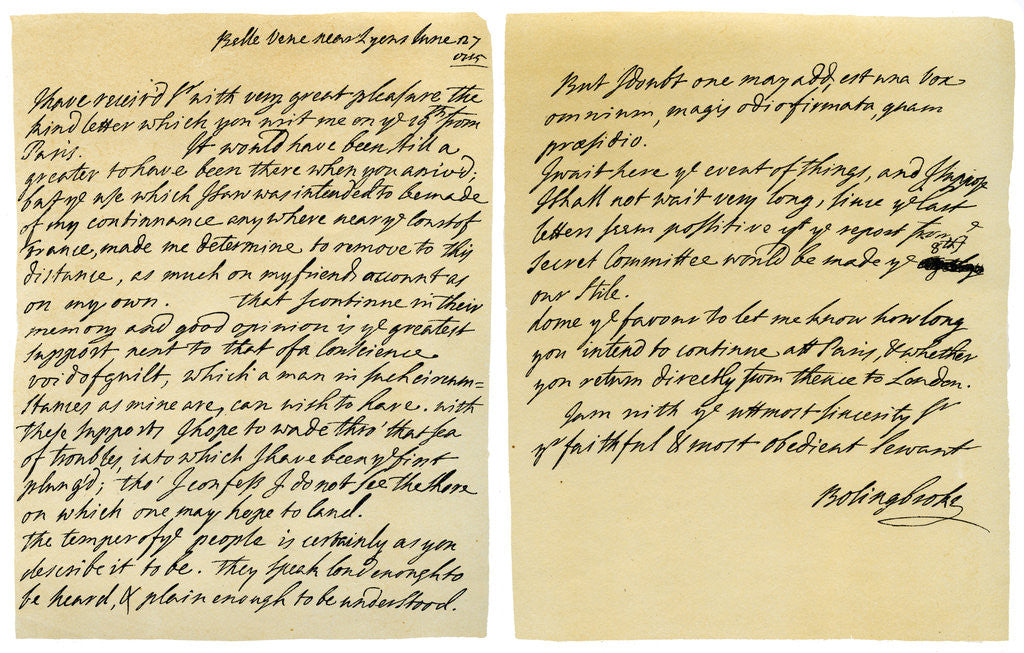 Belle Vene near Lyons June 27
1715
I have receiv'd Sr with very great pleasure the
kind letter which you writ me on ye 19th from
Paris. It would have been still a
greater to have been there when you arriv'd;
but ye use which I saw was intended to be made
of my continuance any where near ye Court of
France, made me determine to remove to this
distance, as much on my friends account as
on my own. That I continue in their
memory and good opinion is ye greatest
support next to that of a Conscience
void of guilt, which a man in such circum=
stances as mine are, can wish to have. with
these supports I hope to wade thro' that sea
of troubles, into which I have been ye first
plung'd; tho' I confess I do not see the shore
on which one may hope to land.
the temper of ye people is certainly as you
describe it to be. They speak loud enough to
be heard, & plain enough to be understood.
But I doubt one may add, est una vox
omnium, magis odio firmata, quam
præsidio.
I wait here ye event of things, and I suppose
I shall not wait very long, since ye last
letters seem possitive yt ye report from ye
secret Committee would be made ye 8th of
our stile.
do me ye favour to let me know how long
you intend to continue att Paris, & whether
you return directly from thence to London.
I am with ye uttmost sincerity Sr
yr faithful & most obedient Servant
Bolingbroke